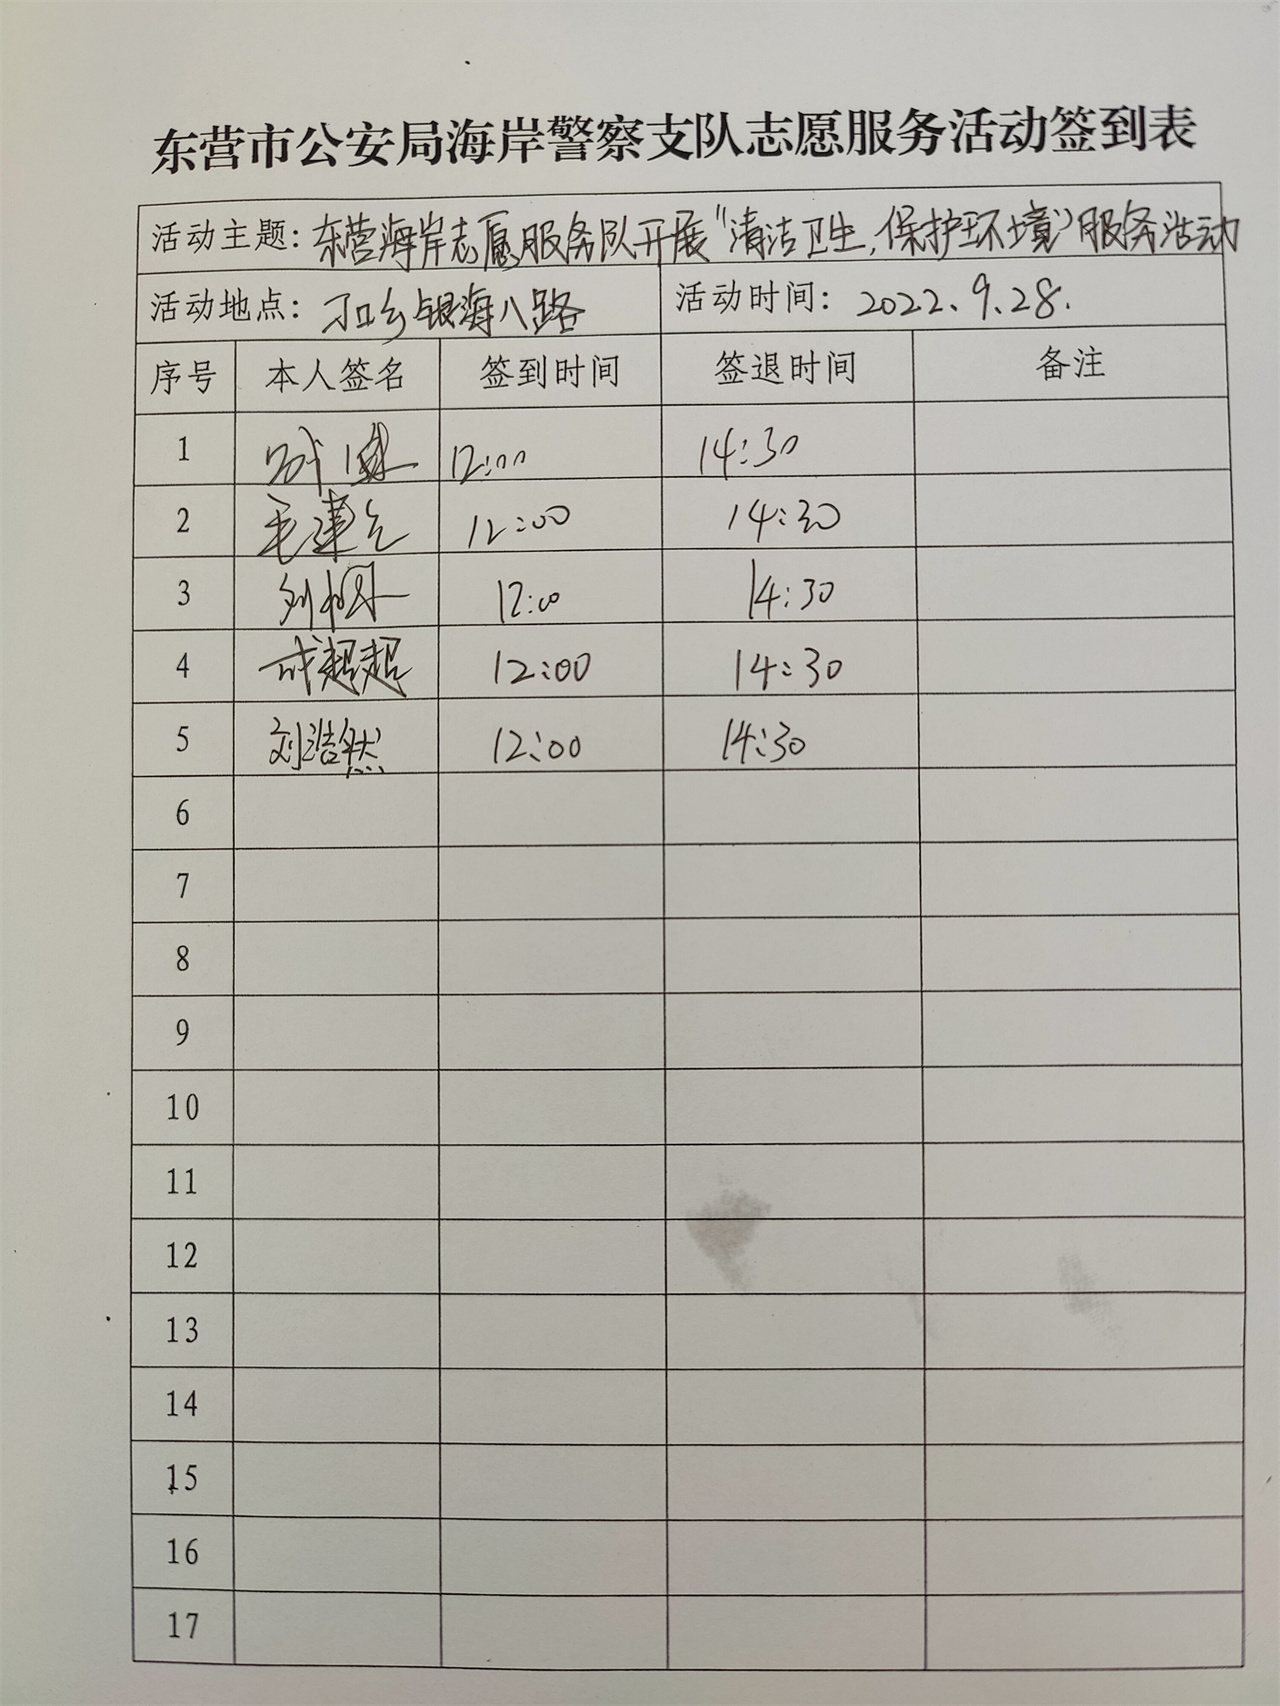 东营市公安局海岸警察支队志愿服务活动签到表
活动主题：东营海岸志愿服务队开展“清洁卫生，保护环境”服务活动
活动地点：刁口乡银海八路 活动时间：2022.9.28.
序号 本人签名 签到时间 签退时间 备注
1 12:00 14:30
2 毛建元 12:00 14:30
3 12:00 14:30
4 成超超 12:00 14:30
5 刘浩然 12:00 14:30
6
7
8
9
10
11
12
13
14
15
16
17